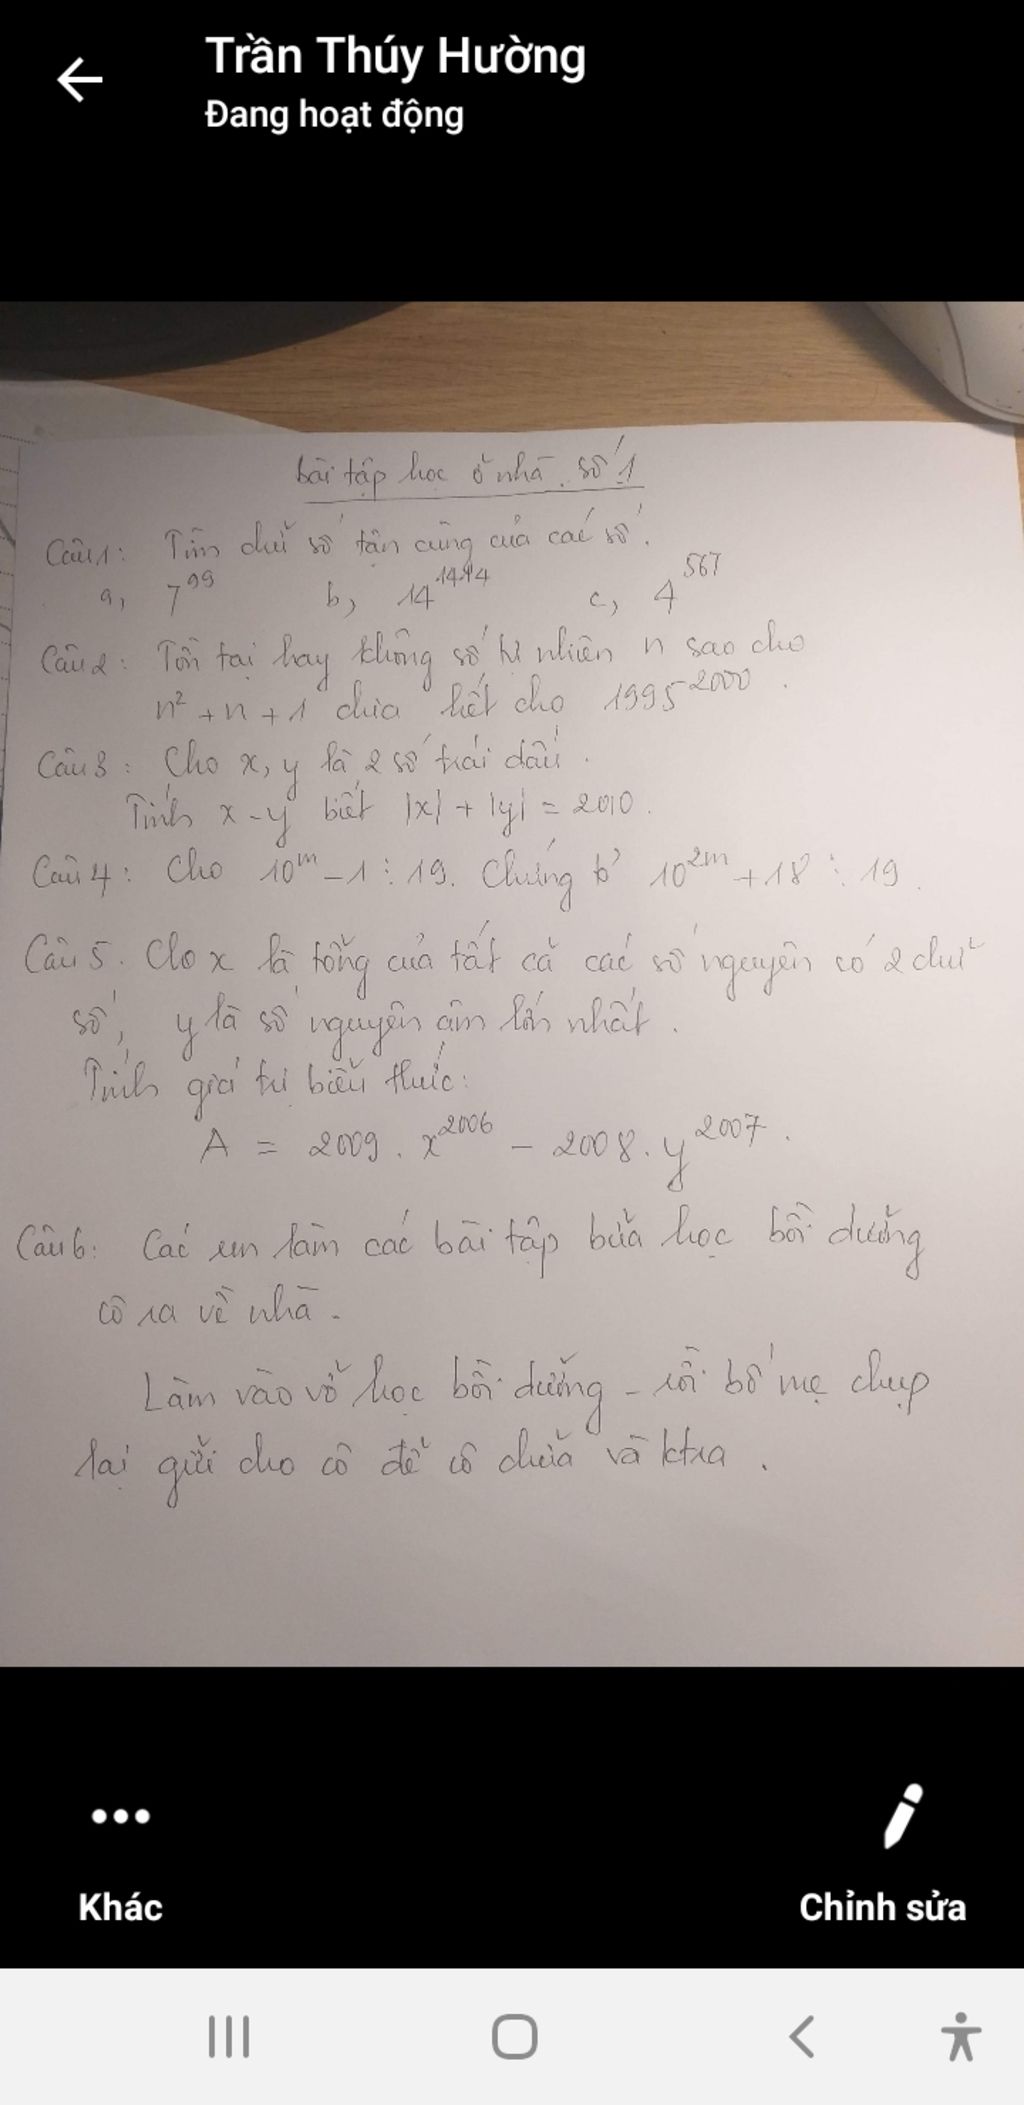 Trần Thúy Hường
Đang hoạt động
bài tập học ở nhà. số 1
Câu 1: Tìm chữ số tận cùng của các số.
a, 7^99 b, 14^1414 c, 4^567
Câu 2: Tồn tại hay không số tự nhiên n sao cho
n² + n + 1 chia hết cho 1995^2000.
Câu 3: Cho x, y là 2 số trái dấu.
Tính x - y biết |x| + |y| = 2010.
Câu 4: Cho 10^m - 1 ⋮ 19. Chứng tỏ 10^2m + 18 ⋮ 19.
Câu 5. Cho x là tổng của tất cả các số nguyên có 2 chữ
số, y là số nguyên âm lớn nhất.
Tính giá trị biểu thức:
A = 2009. x^2006 - 2008. y^2007.
Câu 6: Các em làm các bài tập buổi học bồi dưỡng
cô ra về nhà.
Làm vào vở học bồi dưỡng - rồi bố mẹ chụp
lại gửi cho cô để cô chữa và ktra.
Khác Chỉnh sửa